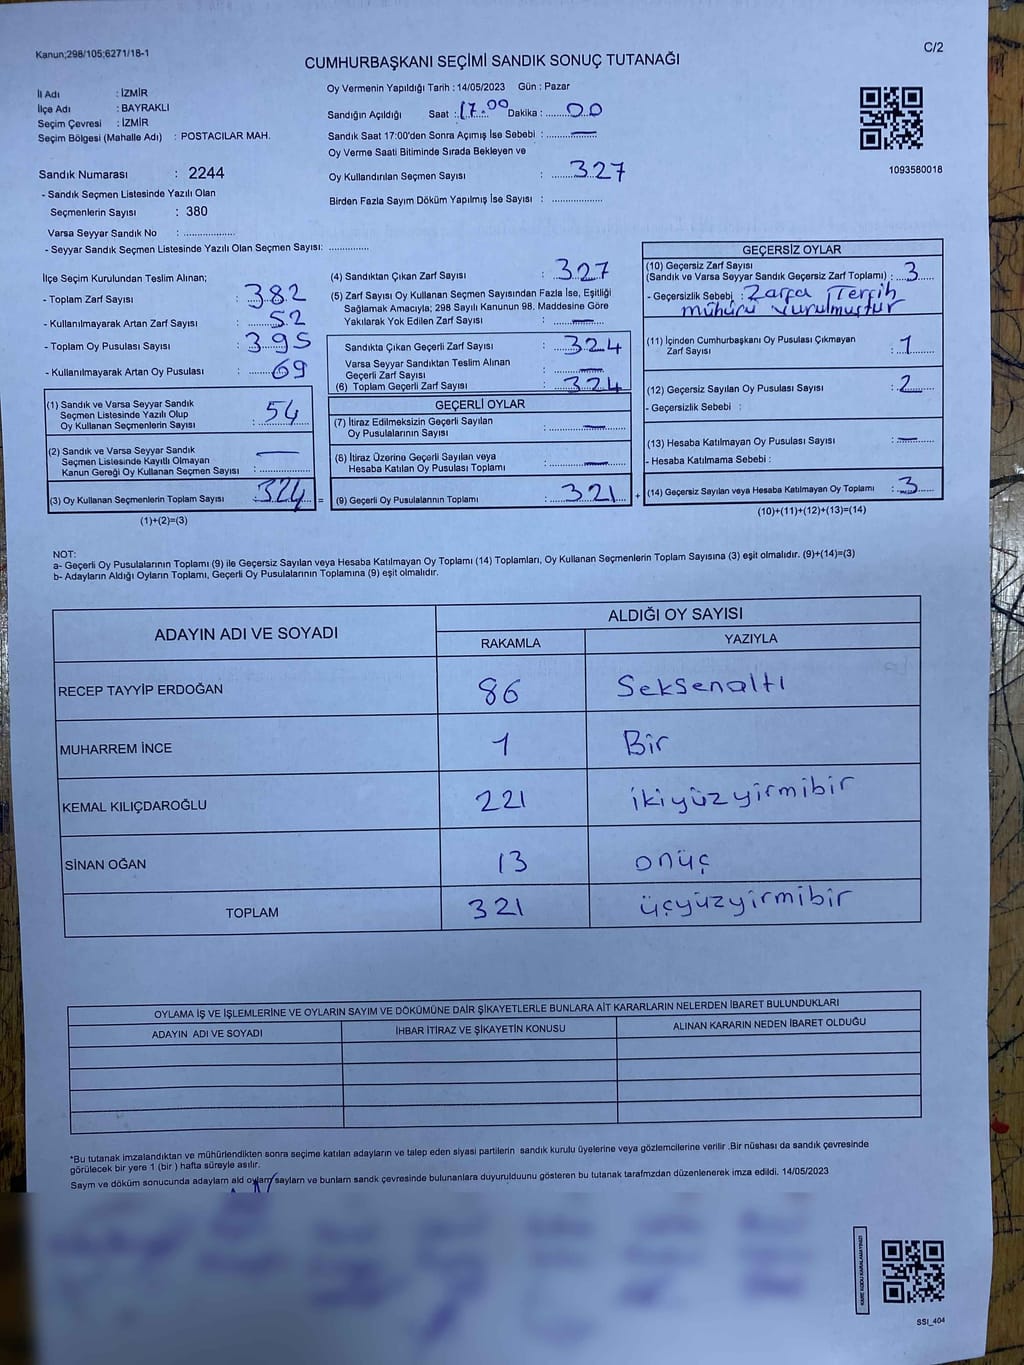 Kanun;298/105;6271/18-1
C/2
CUMHURBAŞKANI SEÇİMİ SANDIK SONUÇ TUTANAĞI
İl Adı : İZMİR
İlçe Adı : BAYRAKLI
Seçim Çevresi : İZMİR
Seçim Bölgesi (Mahalle Adı) : POSTACILAR MAH.
Sandık Numarası : 2244
- Sandık Seçmen Listesinde Yazılı Olan
Seçmenlerin Sayısı : 380
Varsa Seyyar Sandık No : ..................
- Seyyar Sandık Seçmen Listesinde Yazılı Olan Seçmen Sayısı: ..............
Oy Vermenin Yapıldığı Tarih : 14/05/2023 Gün : Pazar
Sandığın Açıldığı Saat : 17.00 Dakika : 00
Sandık Saat 17:00'den Sonra Açımış İse Sebebi : —
Oy Verme Saati Bitiminde Sırada Bekleyen ve
Oy Kullandırılan Seçmen Sayısı : 327
Birden Fazla Sayım Döküm Yapılmış İse Sayısı : ..................
1093580018
İlçe Seçim Kurulundan Teslim Alınan;
- Toplam Zarf Sayısı : 382
- Kullanılmayarak Artan Zarf Sayısı : 52
- Toplam Oy Pusulası Sayısı : 395
- Kullanılmayarak Artan Oy Pusulası : 69
(1) Sandık ve Varsa Seyyar Sandık
Seçmen Listesinde Yazılı Olup
Oy Kullanan Seçmenlerin Sayısı : 54
(2) Sandık ve Varsa Seyyar Sandık
Seçmen Listesinde Kayıtlı Olmayan
Kanun Gereği Oy Kullanan Seçmen Sayısı : —
(3) Oy Kullanan Seçmenlerin Toplam Sayısı : 324 =
(1)+(2)=(3)
(4) Sandıktan Çıkan Zarf Sayısı : 327
(5) Zarf Sayısı Oy Kullanan Seçmen Sayısından Fazla İse, Eşitliği
Sağlamak Amacıyla; 298 Sayılı Kanunun 98. Maddesine Göre
Yakılarak Yok Edilen Zarf Sayısı : —
Sandıkta Çıkan Geçerli Zarf Sayısı : 324
Varsa Seyyar Sandıktan Teslim Alınan
Geçerli Zarf Sayısı : —
(6) Toplam Geçerli Zarf Sayısı : 324
GEÇERLİ OYLAR
(7) İtiraz Edilmeksizin Geçerli Sayılan
Oy Pusulalarının Sayısı : —
(8) İtiraz Üzerine Geçerli Sayılan veya
Hesaba Katılan Oy Pusulası Toplamı : —
(9) Geçerli Oy Pusulalarının Toplamı : 321 +
GEÇERSİZ OYLAR
(10) Geçersiz Zarf Sayısı
(Sandık ve Varsa Seyyar Sandık Geçersiz Zarf Toplamı) : 3
- Geçersizlik Sebebi : Zarfa Tercih
mühürü vurulmuştur
(11) İçinden Cumhurbaşkanı Oy Pusulası Çıkmayan
Zarf Sayısı : 1
(12) Geçersiz Sayılan Oy Pusulası Sayısı : 2
- Geçersizlik Sebebi :
(13) Hesaba Katılmayan Oy Pusulası Sayısı : —
- Hesaba Katılmama Sebebi :
(14) Geçersiz Sayılan veya Hesaba Katılmayan Oy Toplamı : 3
(10)+(11)+(12)+(13)=(14)
NOT:
a- Geçerli Oy Pusulalarının Toplamı (9) ile Geçersiz Sayılan veya Hesaba Katılmayan Oy Toplamı (14) Toplamları, Oy Kullanan Seçmenlerin Toplam Sayısına (3) eşit olmalıdır. (9)+(14)=(3)
b- Adayların Aldığı Oyların Toplamı, Geçerli Oy Pusulalarının Toplamına (9) eşit olmalıdır.
ADAYIN ADI VE SOYADI
ALDIĞI OY SAYISI
RAKAMLA YAZIYLA
RECEP TAYYİP ERDOĞAN 86 Seksenaltı
MUHARREM İNCE 1 Bir
KEMAL KILIÇDAROĞLU 221 ikiyüzyirmibir
SİNAN OĞAN 13 onüç
TOPLAM 321 üçyüzyirmibir
OYLAMA İŞ VE İŞLEMLERİNE VE OYLARIN SAYIM VE DÖKÜMÜNE DAİR ŞİKAYETLERLE BUNLARA AİT KARARLARIN NELERDEN İBARET BULUNDUKLARI
ADAYIN ADI VE SOYADI İHBAR İTİRAZ VE ŞİKAYETİN KONUSU ALINAN KARARIN NEDEN İBARET OLDUĞU
*Bu tutanak imzalandıktan ve mühürlendikten sonra seçime katılan adayların ve talep eden siyasi partilerin sandık kurulu üyelerine veya gözlemcilerine verilir .Bir nüshası da sandık çevresinde
görülecek bir yere 1 (bir ) hafta süreyle asılır.
Sayım ve döküm sonucunda adayların ald oyların sayların ve bunların sandk çevresinde bulunanlara duyurulduunu gösteren bu tutanak tarafmzdan düzenlenerek imza edildi. 14/05/2023
KARE KODU KARALAMAYINIZ!
SSI_404